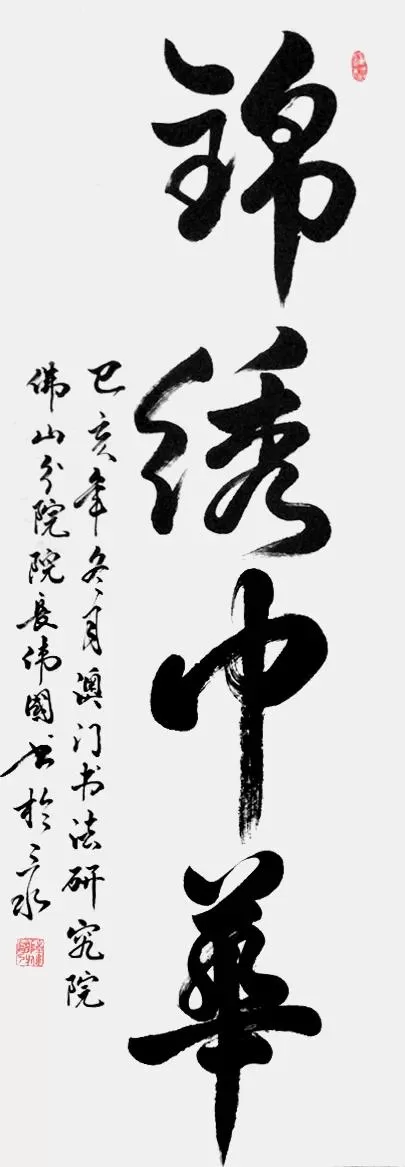 錦绣中華
己亥年冬月澳门书法研究院
佛山分院院長伟國书於三水